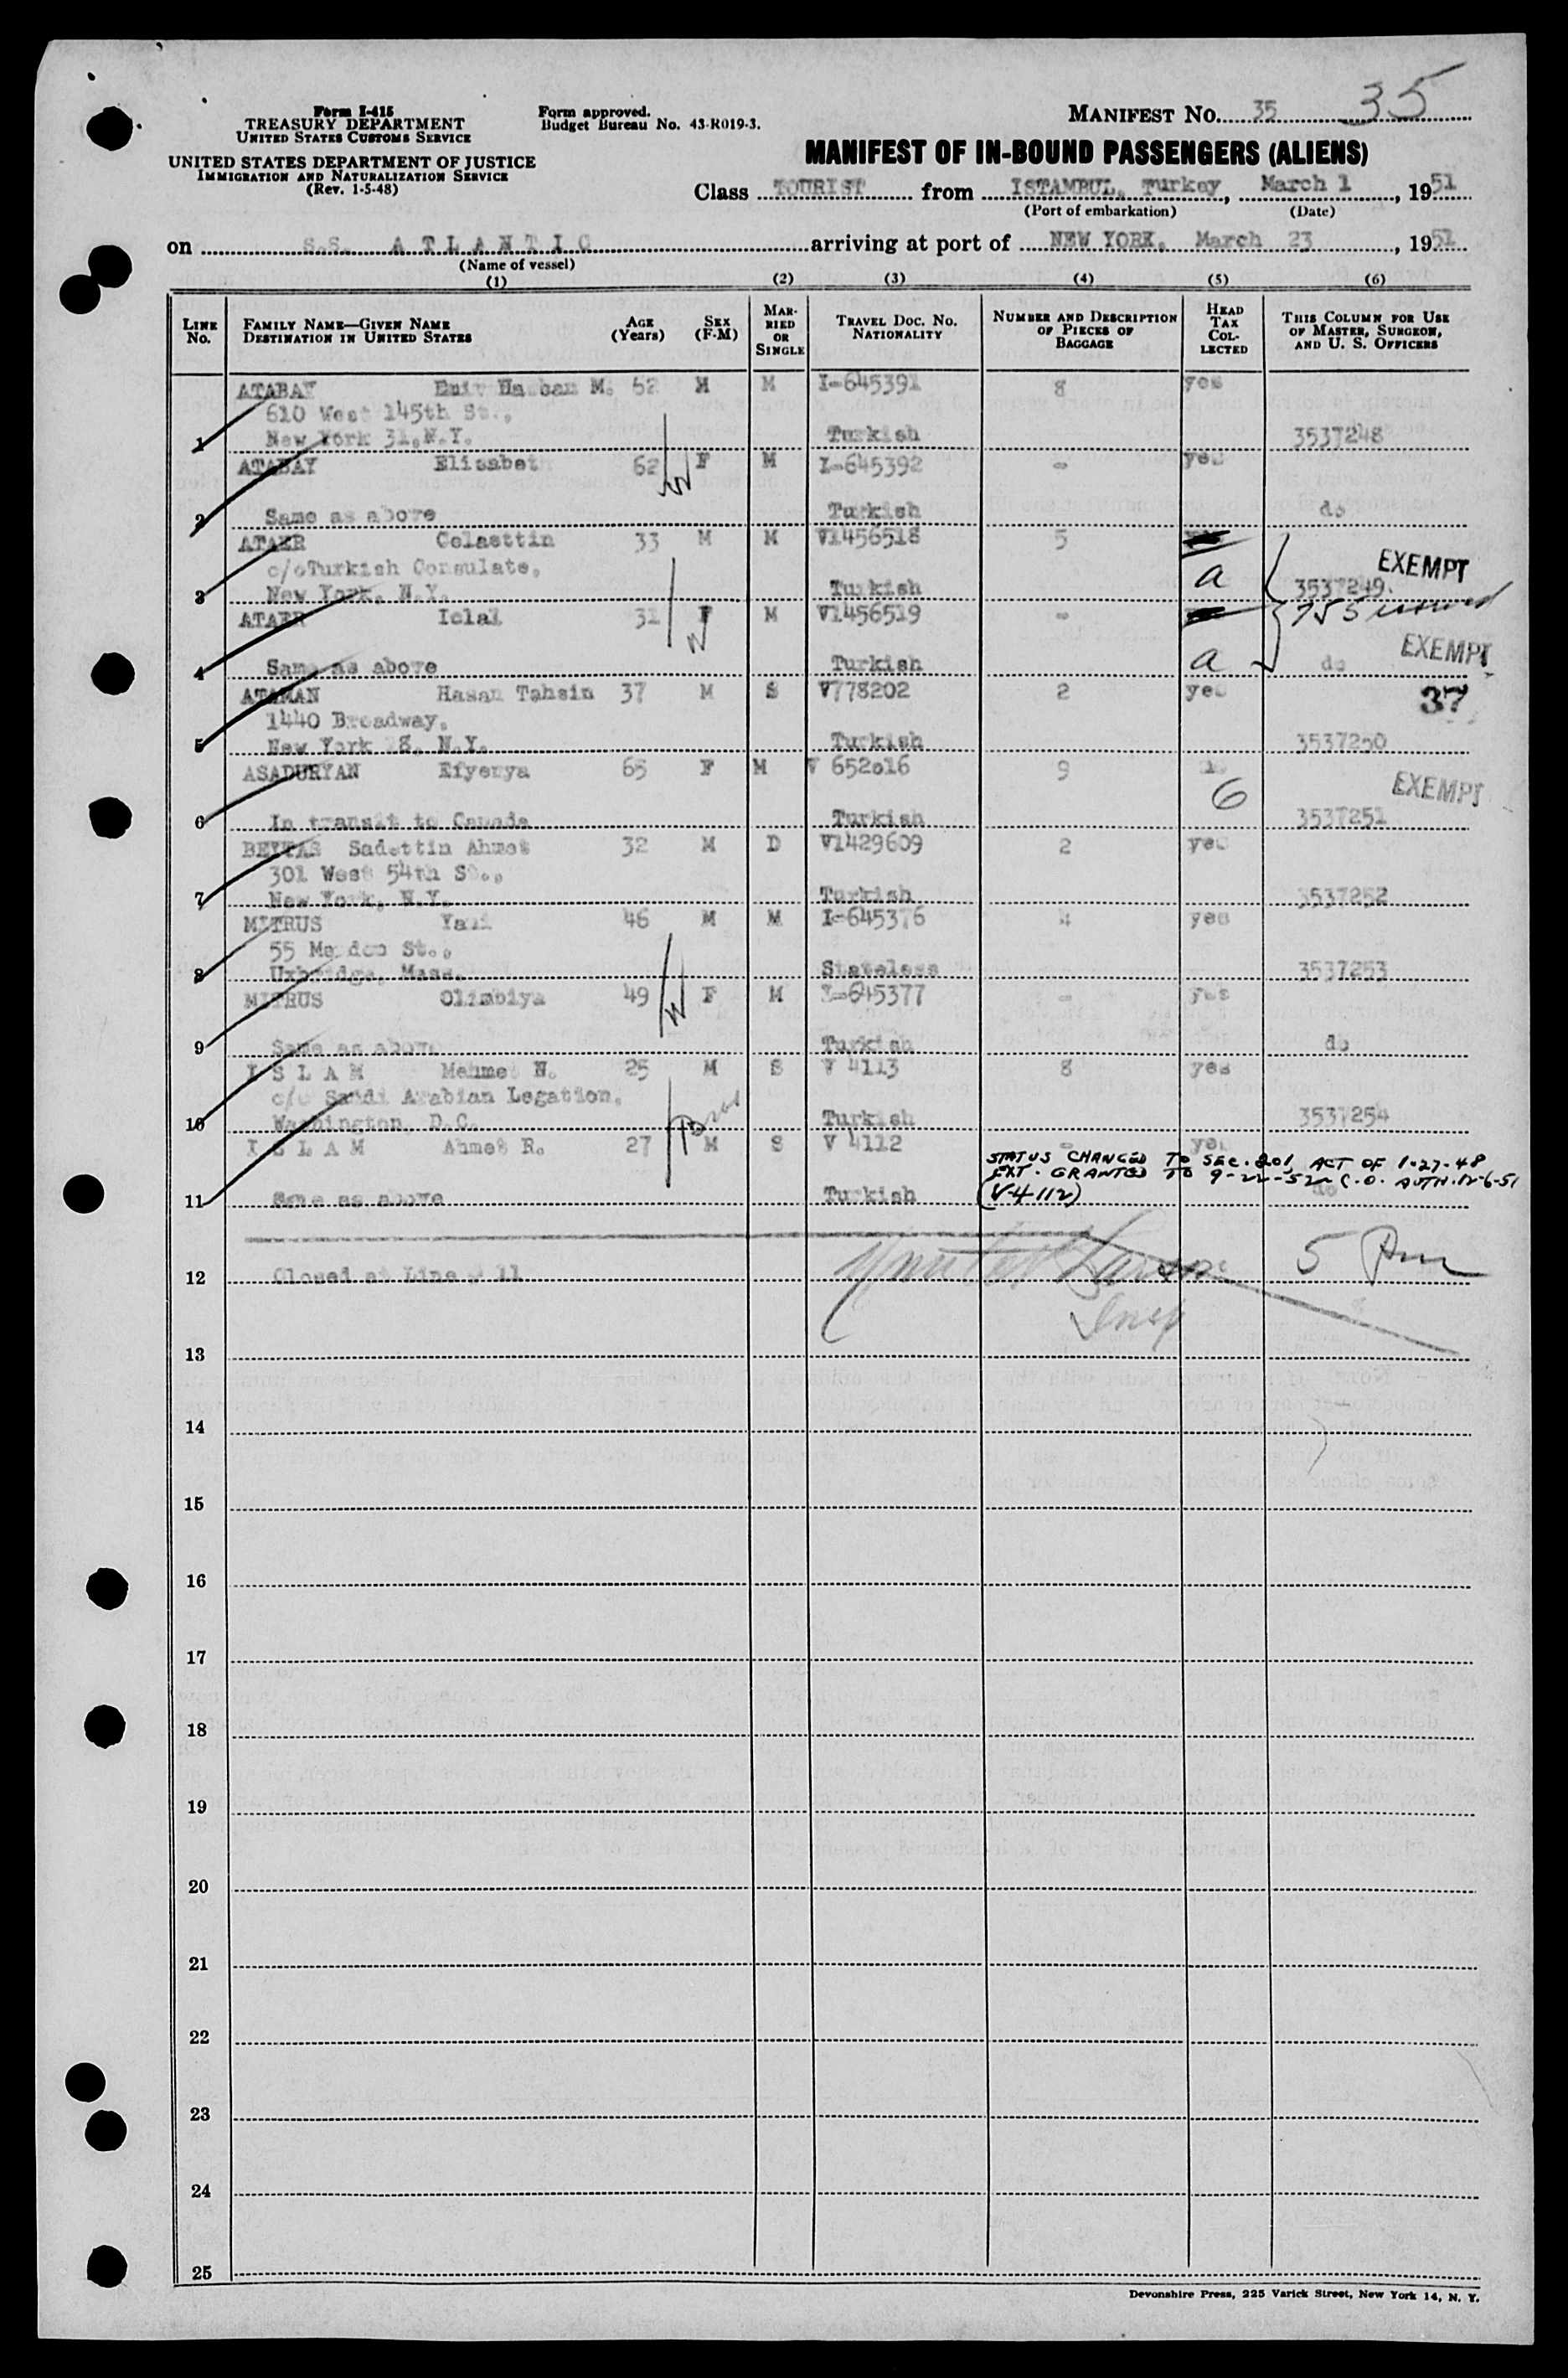 Form I-415
TREASURY DEPARTMENT
UNITED STATES CUSTOMS SERVICE
UNITED STATES DEPARTMENT OF JUSTICE
IMMIGRATION AND NATURALIZATION SERVICE
(Rev. 1-5-48)
Form approved.
Budget Bureau No. 43-R019-3.
MANIFEST NO. 35 35
MANIFEST OF IN-BOUND PASSENGERS (ALIENS)
Class TOURIST from ISTAMBUL, Turkey, March 1, 1951
(Port of embarkation) (Date)
on S.S. ATLANTIC arriving at port of NEW YORK, March 23, 1951
(Name of vessel)
(1) (2) (3) (4) (5) (6)
LINE No. FAMILY NAME—GIVEN NAME DESTINATION IN UNITED STATES AGE (Years) SEX (F-M) MARRIED OR SINGLE TRAVEL DOC. NO. NATIONALITY NUMBER AND DESCRIPTION OF PIECES OF BAGGAGE HEAD TAX COLLECTED THIS COLUMN FOR USE OF MASTER, SURGEON, AND U. S. OFFICERS
ATABAY M. 62 M M I-645391 8 yes
610 West 145th St.,
1 New York 31,N.Y. Turkish 3537248
ATABAY Elisabet 62 W F M I-645392 - yes
2 Same as above Turkish do
ATAER Celaettin 33 M M V1456518 5
c/oTurkish Consulate, a EXEMPT
3 New York, N.Y. Turkish 3537249
ATAER Iclal 31 W F M V1456519 - 755 issued
4 Same as above Turkish a do EXEMPT
ATAMAN Hasan Tahsin 37 M S V778202 2 yes 37
1440 Broadway,
5 New York 18, N.Y. Turkish 3537250
ASADURYAN Efyenya 65 F M V 652016 9
6 EXEMPT
6 In transit to Canada Turkish 3537251
BEYTAS Sadettin Ahmet 32 M D V1429609 2 yes
301 West 54th St.,
7 New York, N.Y. Turkish 3537252
MITRUS Yani 46 M M I-645376 4 yes
55 Mendon St.,
8 Uxbridge, Mass. Stateless 3537253
MITRUS Olimbiya 49 W F M I-645377 - yes
9 Same as above Turkish do
I S L A M Mehmet N. 25 M S V 4113 8 yes
c/o Saudi Arabian Legation,
10 Washington, D.C. Turkish 3537254
I S L A M Ahmet R. 27 M S V 4112 - yes
STATUS CHANGED TO SEC. 201, ACT OF 1-27-48
EXT. GRANTED TO 9-22-52 C.O. AUTH. 12-6-51
11 Same as above Turkish (V-4112) do
12 Closed at Line # 11 5 Pm
Insp
13
14
15
16
17
18
19
20
21
22
23
24
25
Devonshire Press, 225 Varick Street, New York 14, N. Y.